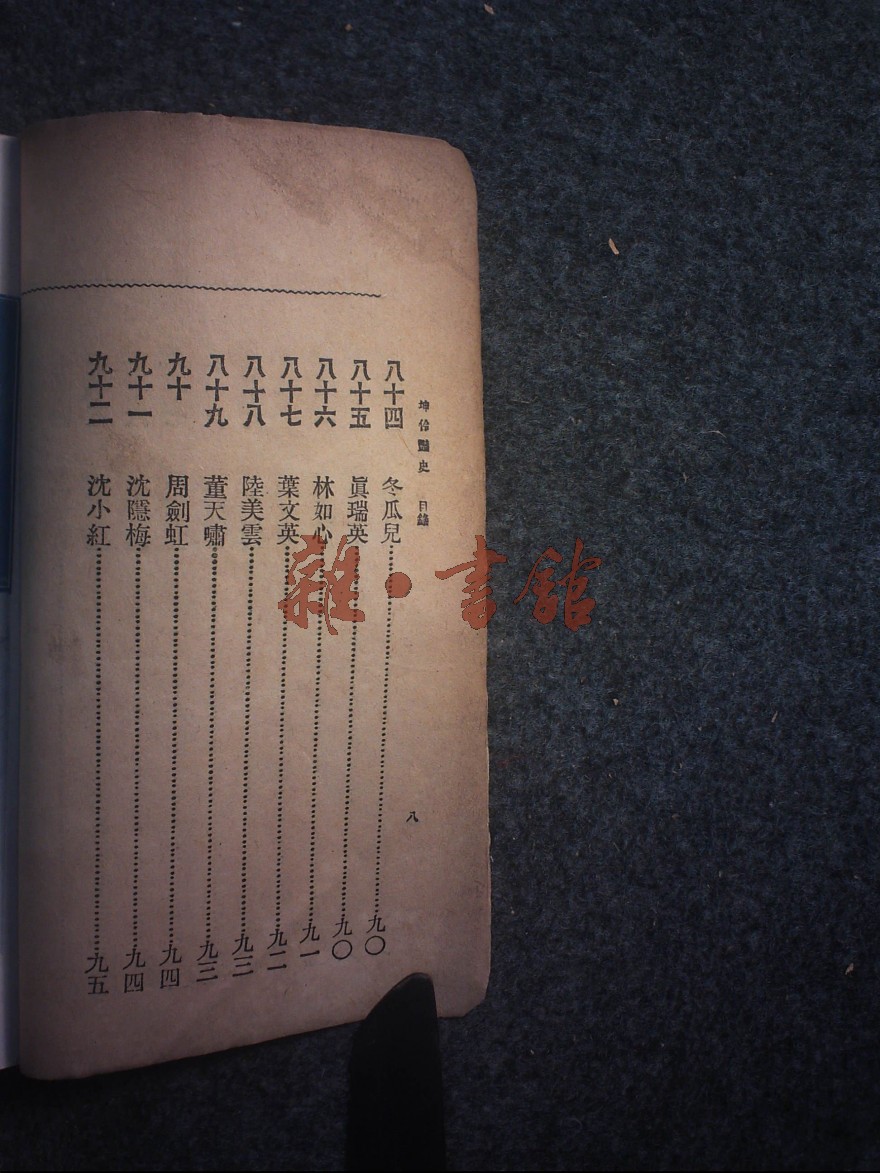 坤伶豔史 目錄
八
八十四 冬瓜兒……九〇
八十五 眞瑞英……九〇
八十六 林如心……九一
八十七 葉文英……九二
八十八 陸美雲……九三
八十九 董天嘯……九三
九十 周劍虹……九四
九十一 沈隱梅……九四
九十二 沈小紅……九五
雜·書館